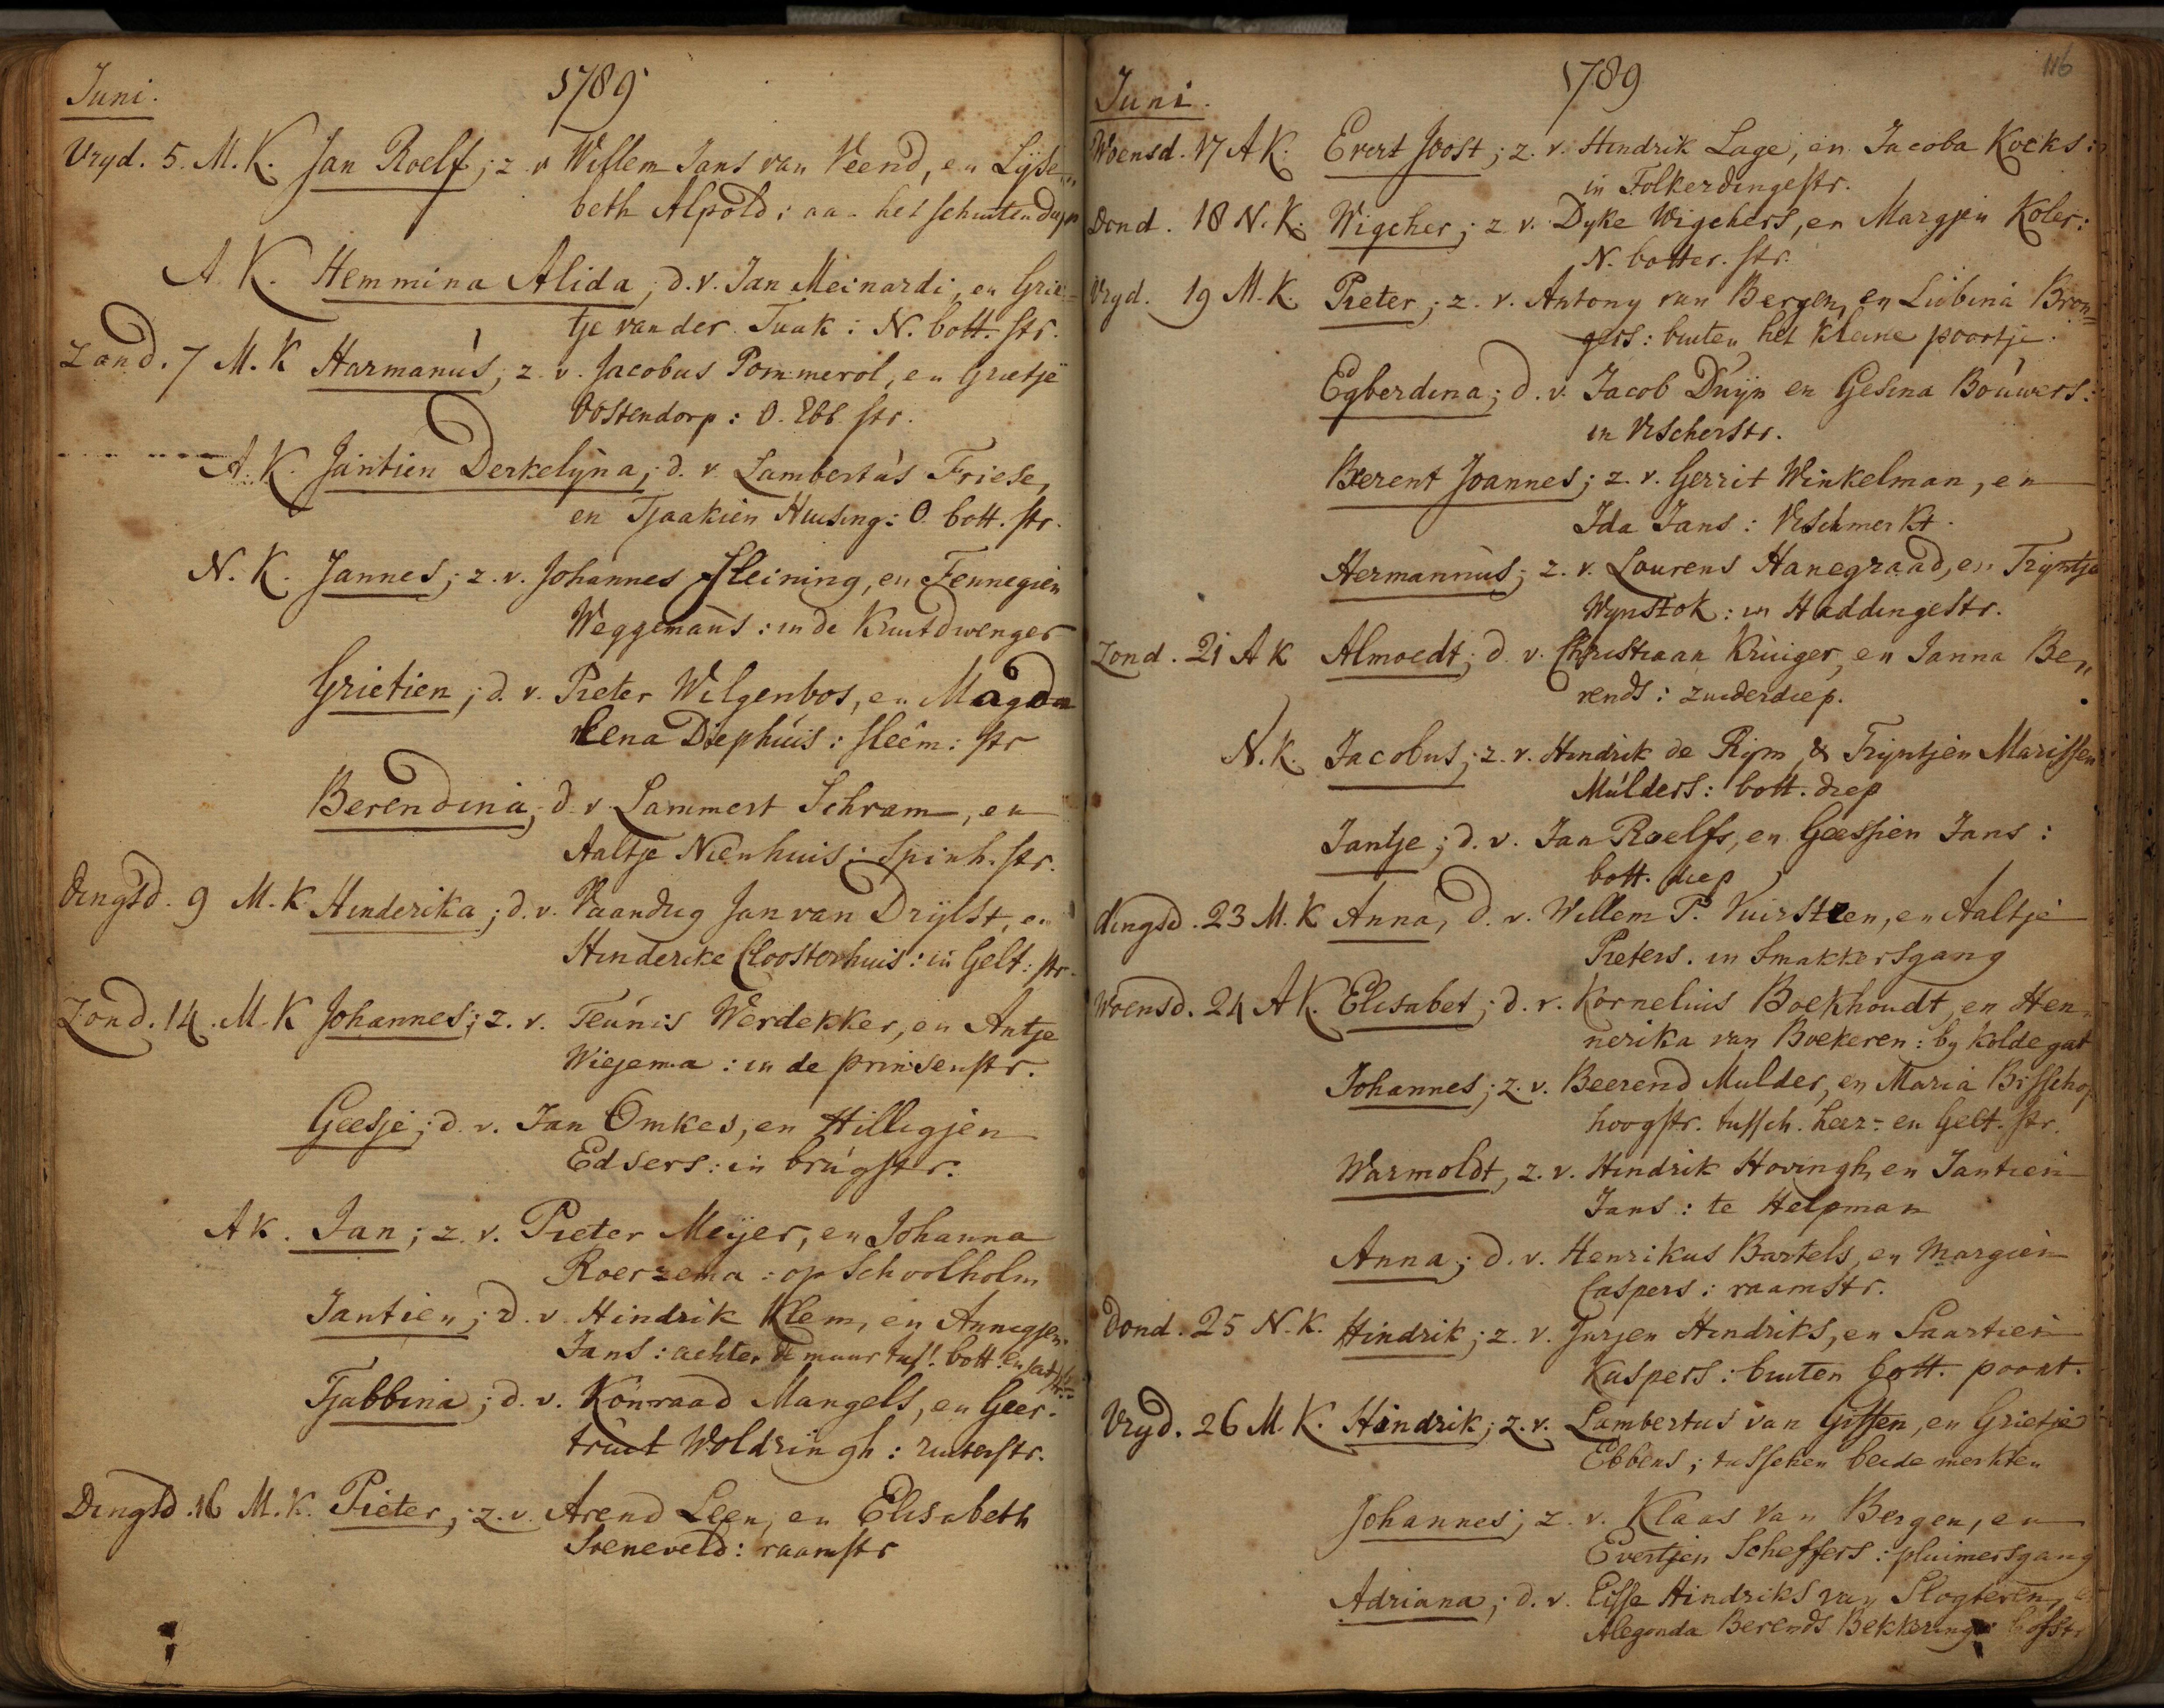 Juni.
1789
Vryd. 5. M. K. Jan Roelf; z. v Willem Jans van Veend, en Lyse„
beth Alpold: aan het schuitendiep
A. K. Hemmina Alida; d. v. Jan Meinardi, en Grie=
tje van der Tuuk: N. bott. str.
Zond. 7 M. K Harmanus; z. v. Jacobus Pommerol, en Grietje
Oostendorp: O. Ebb. str.
A. K. Jantien Derkelyna; d. v. Lambertus Friese,
en Tjaakien Huising: O. bott. str.
N. K. Jannes; z. v. Johannes Fleining, en Fennegien
Weggemans: in de Kruitdwenger
Grietien; d. v. Pieter Wilgenbos, en Magda
lena Diephuis: steem: str
Berendina; d. v. Lammert Schram, en
Aaltje Nienhuis: Spinh. str.
Dingsd. 9 M. K Hinderika; d. v. Vaandrig Jan van Drylst, en
Hinderike Cloosterhuis: in Gelt: str.
Zond. 14. M. K Johannes; z. v. Teunis Werdekker, en Antje
Wiejema: in de prinsenstr.
Geesje; d. v. Jan Omkes, en Hillegjen
Edsers: in brugstr.
A K. Jan; z. v. Pieter Meijer, en Johanna
Roerzema: op Schoolholm
Jantien; d. v. Hindrik Klem, en Annegjen
Jans: achter de muur tuss. bott. en
Tjabbina; d. v. Konraad Mangels, en Geer-
truit Woldringh: ruiterstr.
Dingsd. 16 M. K. Pieter; z. v. Arend Leen, en Elisabeth
Soeneveld: raamstr
116
Juni.
1789
Woensd. 17 A K. Evert Joost; z. v. Hindrik Lage, en Jacoba Koeks:
in Folkerdingestr.
Dond. 18 N. K. Wigcher; z. v. Dyke Wigchers, en Margjen Koler:
N. botter. str.
Vryd. 19 M. K. Pieter; z. v. Antony van Bergen, en Liobina Bron=
gers: buiten het kleine poortje.
Egberdina; d. v. Jacob Duyn en Gesina Bouwers:
in Visscherstr.
Berent Joannes; z. v. Gerrit Winkelman, en
Ida Jans: Vischmerkt.
Hermannus; z. v. Lourens Hanegraad, en Tryntje
Wynstok: in Haddingestr.
Zond. 21 A K Almoedt; d. v. Christiaan Kruiger, en Janna Be„
rends: zuiderdiep.
N. K. Jacobus; z. v. Hindrik de Rijm, & Tryntjen Marissen
Mulders: bott. diep
Jantje; d. v. Jan Roelfs, en Geessien Jans:
bott. diep
dingsd. 23 M. K Anna, d. v. Willem P. Vuirsteen, en Aaltje
Pieters. in Smakkersgang
Woensd. 24 A K. Elisabet; d. v. Kornelius Boekhoudt, en Hen„
nerika van Boekeren: by kolde gat
Johannes; z. v. Beerend Mulder, en Maria Bisschop
hoogstr. tussch. heer- en Gelt. str.
Warmoldt, z. v. Hindrik Hovingh, en Jantien
Jans: te Helpman
Anna; d. v. Henrikus Bartels, en Margien
Caspers: raamstr.
Dond. 25 N. K. Hindrik; z. v. Jurjen Hindriks, en Saartien
Kaspers: buiten bott. poort.
Vryd. 26 M. K. Hindrik; z. v. Lambertus van Gissen, en Grietje
Ebbens; tusschen beide merkten
Johannes; z. v. Klaas van Bergen, en
Evertjen Scheffers: pluimersgang
Adriana; d. v. Eisse Hindriks van Slogteren, en
Alegonda Berends Bekkering: